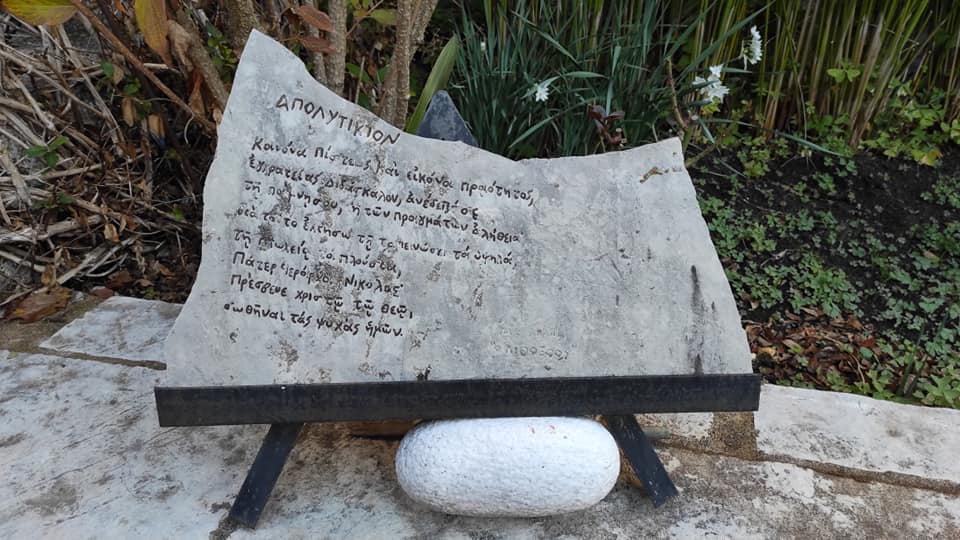 ΑΠΟΛΥΤΙΚΙΟΝ
Κανόνα Πίστεως καὶ εἰκόνα πραότητος,
ἐγκρατείας Διδάσκαλον, ἀνέδειξέ σε
τῇ ποίμνῃ σου, ἡ τῶν πραγμάτων ἀλήθεια
διὰ τοῦτο ἐκτήσω τῇ ταπεινώσει τὰ ὑψηλά,
τῇ πτωχείᾳ τὰ πλούσια,
Πάτερ Ἱεράρχα Νικόλαε
Πρέσβευε χριστῷ τῷ θεῷ,
σωθῆναι τάς ψυχάς ἡμῶν.